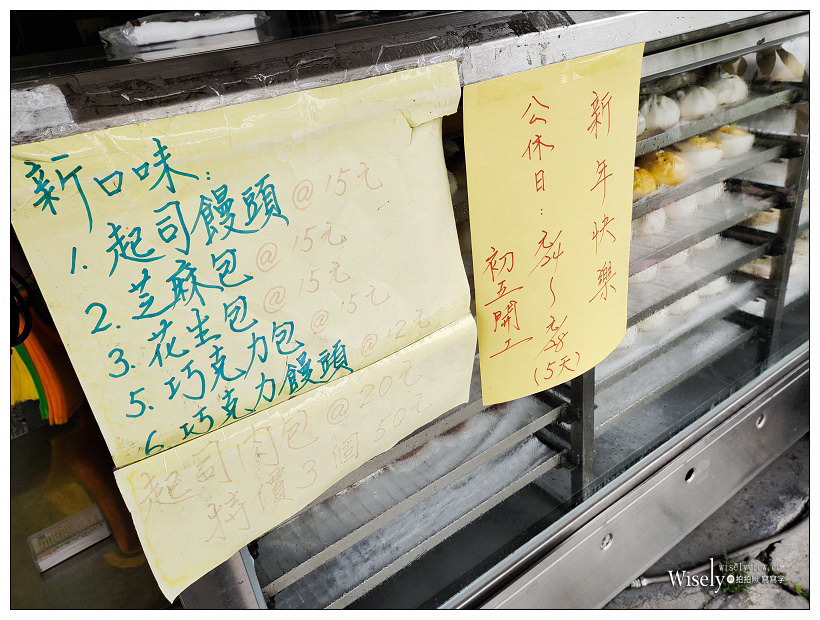 新口味:
1. 起司饅頭 @15元
2. 芝麻包 @15元
3. 花生包 @15元
5. 巧克力包 @15元
6. 巧克力饅頭 @12元
起司肉包 @20元
特價3個50元
新年快樂
公休日: 元/24~元/28 (5天)
初五開工
Wisely 拍拍照 寫寫字